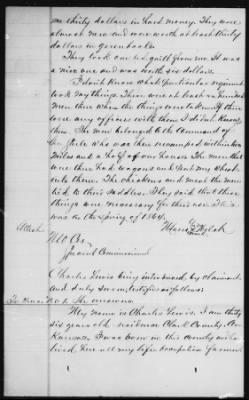 me thirty dollars in hard money. They were
almost new and were worth at least thirty
dollars in green backs.
They took one bed quilt from me. It was
a nice one and was worth six dollars.
I don't know what particular regiment
took my things. There were at least a hundred
men there when the things were taken. If there
were any officers with them I didn't know
them. The men belonged to the command of
Gen. who was then encamped within two
miles and a half of our house. The men that
were there had wagons and put my wheat
into them. The chickens and meat the men
tied to their saddles. They said that these
things were necessary for their use. This
was in the Spring of 1864.
Attest
mark
Special Commissioner
Charles Lewis being introduced by claimant
and duly sworn, testifies as follows:
To the
My name is Charles Lewis. I am thirty
six years old
Kansas. I was born in this county and have
lived here all my life. Occupation farmer